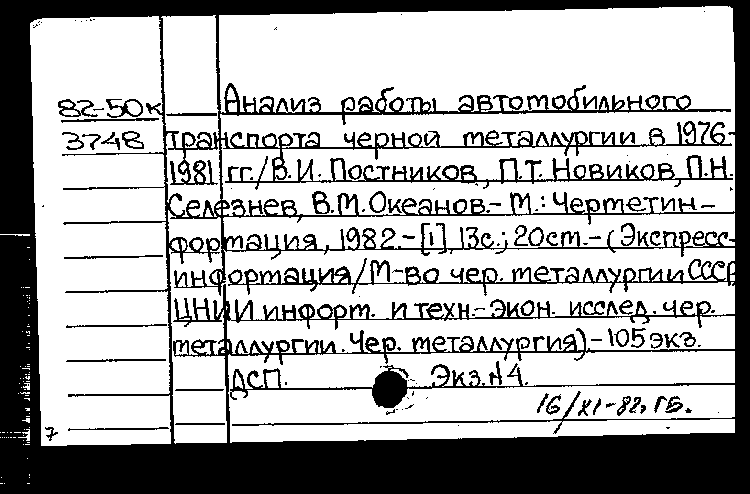 82-50к Анализ работы автомобильного
3748 транспорта черной металлургии в 1976-
1981 гг./В.И. Постников, П.Т. Новиков, П.Н.
Селезнев, В.М. Океанов.- М.: Черметин-
формация, 1982.-[1], 13с.; 20см.-(Экспресс-
информация/М-во чер. металлургии СССР
ЦНИИ информ. и техн.-экон. исслед. чер.
металлургии. Чер. металлургия).-105 экз.
ДСП. Экз.№4.
16/XI-82. ГБ.
7